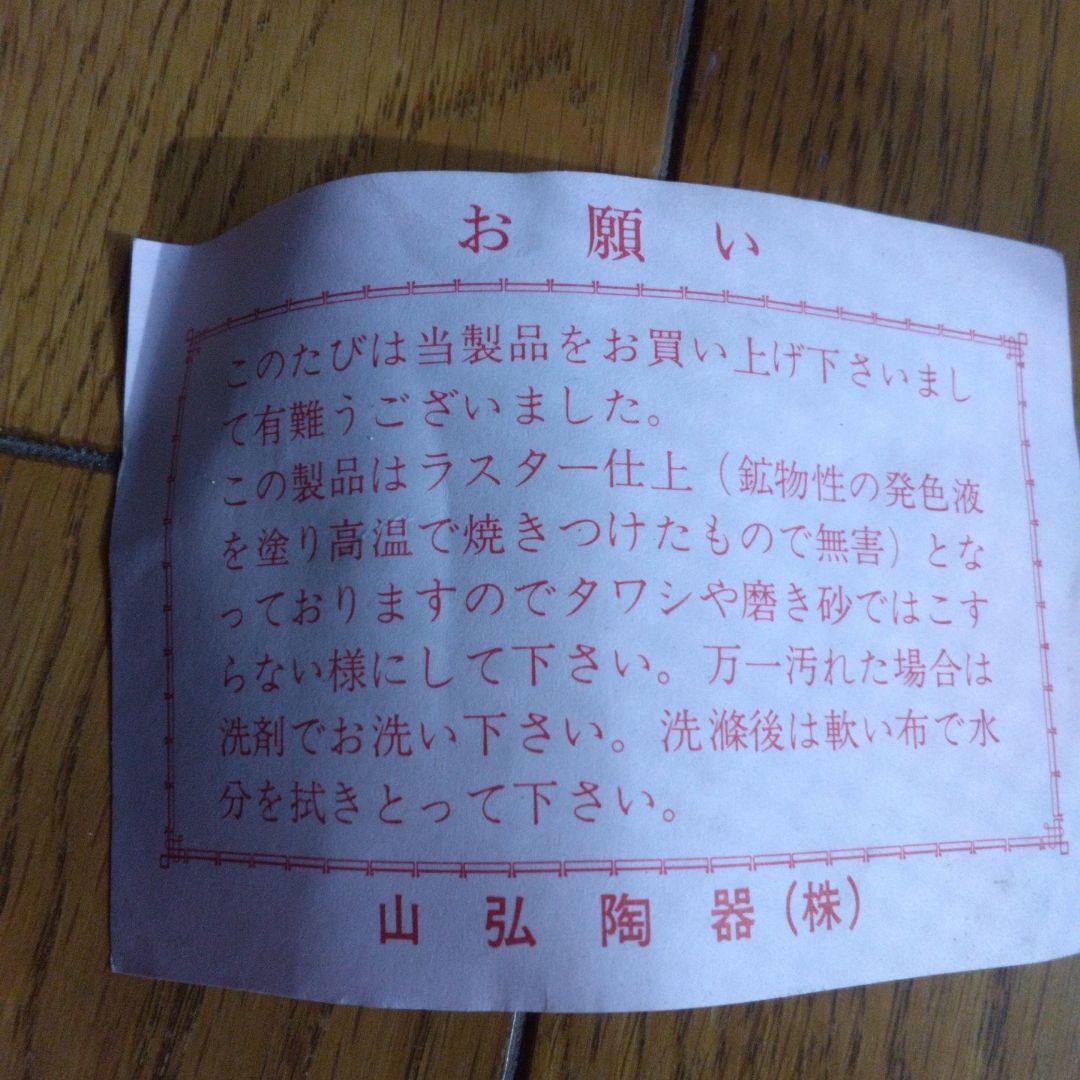 お願い
このたびは当製品をお買い上げ下さいまし
て有難うございました。
この製品はラスター仕上（鉱物性の発色液
を塗り高温で焼きつけたもので無害）とな
っておりますのでタワシや磨き砂ではこす
らない様にして下さい。万一汚れた場合は
洗剤でお洗い下さい。洗滌後は軟い布で水
分を拭きとって下さい。
山弘陶器（株）